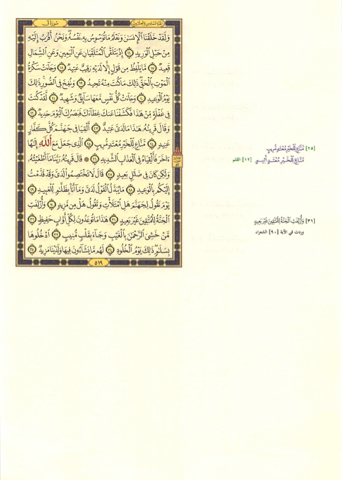 سورة ق
الجزء السادس والعشرون
وَلَقَدْ خَلَقْنَا ٱلْإِنسَٰنَ وَنَعْلَمُ مَا تُوَسْوِسُ بِهِۦ نَفْسُهُۥ وَنَحْنُ أَقْرَبُ إِلَيْهِ
مِنْ حَبْلِ ٱلْوَرِيدِ ١٦ إِذْ يَتَلَقَّى ٱلْمُتَلَقِّيَانِ عَنِ ٱلْيَمِينِ وَعَنِ ٱلشِّمَالِ
قَعِيدٌ ١٧ مَّا يَلْفِظُ مِن قَوْلٍ إِلَّا لَدَيْهِ رَقِيبٌ عَتِيدٌ ١٨ وَجَآءَتْ سَكْرَةُ
ٱلْمَوْتِ بِٱلْحَقِّ ذَٰلِكَ مَا كُنتَ مِنْهُ تَحِيدُ ١٩ وَنُفِخَ فِى ٱلصُّورِ ذَٰلِكَ
يَوْمُ ٱلْوَعِيدِ ٢٠ وَجَآءَتْ كُلُّ نَفْسٍ مَّعَهَا سَآئِقٌ وَشَهِيدٌ ٢١ لَّقَدْ كُنتَ
فِى غَفْلَةٍ مِّنْ هَٰذَا فَكَشَفْنَا عَنكَ غِطَآءَكَ فَبَصَرُكَ ٱلْيَوْمَ حَدِيدٌ ٢٢
وَقَالَ قَرِينُهُۥ هَٰذَا مَا لَدَىَّ عَتِيدٌ ٢٣ أَلْقِيَا فِى جَهَنَّمَ كُلَّ كَفَّارٍ
عَنِيدٍ ٢٤ مَّنَّاعٍ لِّلْخَيْرِ مُعْتَدٍ مُّرِيبٍ ٢٥ ٱلَّذِى جَعَلَ مَعَ ٱللَّهِ إِلَٰهًا
ءَاخَرَ فَأَلْقِيَاهُ فِى ٱلْعَذَابِ ٱلشَّدِيدِ ٢٦ قَالَ قَرِينُهُۥ رَبَّنَا مَآ أَطْغَيْتُهُۥ
وَلَٰكِن كَانَ فِى ضَلَٰلٍۭ بَعِيدٍ ٢٧ قَالَ لَا تَخْتَصِمُوا۟ لَدَىَّ وَقَدْ قَدَّمْتُ
إِلَيْكُم بِٱلْوَعِيدِ ٢٨ مَا يُبَدَّلُ ٱلْقَوْلُ لَدَىَّ وَمَآ أَنَا۠ بِظَلَّٰمٍ لِّلْعَبِيدِ ٢٩
يَوْمَ نَقُولُ لِجَهَنَّمَ هَلِ ٱمْتَلَأْتِ وَتَقُولُ هَلْ مِن مَّزِيدٍ ٣٠ وَأُزْلِفَتِ
ٱلْجَنَّةُ لِلْمُتَّقِينَ غَيْرَ بَعِيدٍ ٣١ هَٰذَا مَا تُوعَدُونَ لِكُلِّ أَوَّابٍ حَفِيظٍ ٣٢
مَّنْ خَشِىَ ٱلرَّحْمَٰنَ بِٱلْغَيْبِ وَجَآءَ بِقَلْبٍ مُّنِيبٍ ٣٣ ٱدْخُلُوهَا
بِسَلَٰمٍ ذَٰلِكَ يَوْمُ ٱلْخُلُودِ ٣٤ لَهُم مَّا يَشَآءُونَ فِيهَا وَلَدَيْنَا مَزِيدٌ ٣٥
٥١٩
[٢٥] مَّنَّاعٍ لِّلْخَيْرِ مُعْتَدٍ مُّرِيبٍ
مَّنَّاعٍ لِّلْخَيْرِ مُعْتَدٍ أَثِيمٍ [١٢] القلم
[٣١] وَأُزْلِفَتِ ٱلْجَنَّةُ لِلْمُتَّقِينَ غَيْرَ بَعِيدٍ
وردت في الآية [٩٠] الشعراء